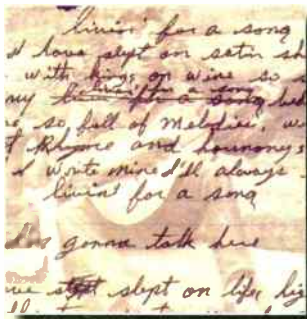 livin' for a song
I have slept on satin sh
with kings on wine so
my livin' for a song
so full of Melodies, w
Rhyme and harmonys
I wrote mine I'll always
livin' for a song
gonna talk here
slept on life's hig